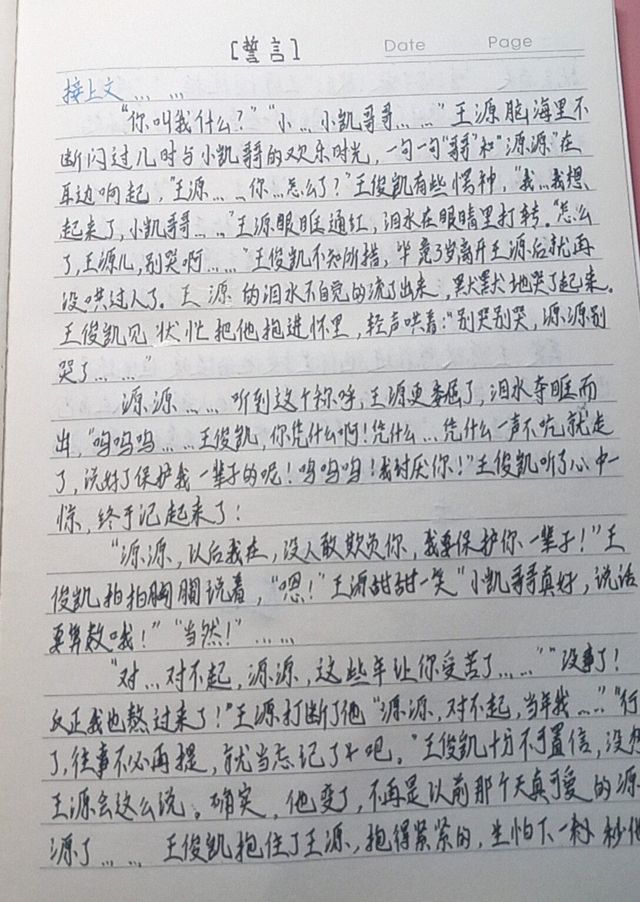 [誓言]
Date Page
接上文… …
“你叫我什么？”“小…小凯哥哥……”王源脑海里不
断闪过儿时与小凯哥的欢乐时光，一句一句“哥哥”和“源源”在
耳边响起，“王源……你…怎么了？”王俊凯有些愣神，“我…我想
起来了，小凯哥哥……”王源眼眶通红，泪水在眼睛里打转。“怎么
了，王源儿，别哭啊……”王俊凯不知所措，毕竟3岁离开王源后就再
没哄过人了。王源的泪水不自觉的流了出来，默默地哭了起来。
王俊凯见状忙把他抱进怀里，轻声哄着：“别哭别哭，源源别
哭了……”
源源……听到这个称呼，王源更委屈了，泪水夺眶而
出，“呜呜呜……王俊凯，你凭什么啊！凭什么…凭什么一声不吭就走
了，说好了保护我一辈子的呢！呜呜呜！我讨厌你！”王俊凯听了心中一
惊，终于记起来了：
“源源，以后我在，没人敢欺负你，我要保护你一辈子！”王
俊凯拍拍胸脯说着，“嗯！”王源甜甜一笑“小凯哥哥真好，说话
要算数哦！”“当然！”……
“对…对不起，源源，这些年让你受苦了……”“没事了！
反正我也熬过来了！”王源打断了他“源源，对不起，当年我…”“行
了，往事不必再提，就当忘记了吧。”王俊凯十分不可置信，没想
王源会这么说。确实，他变了，不再是以前那个天真可爱的源
源了…… 王俊凯抱住了王源，抱得紧紧的，生怕下一秒